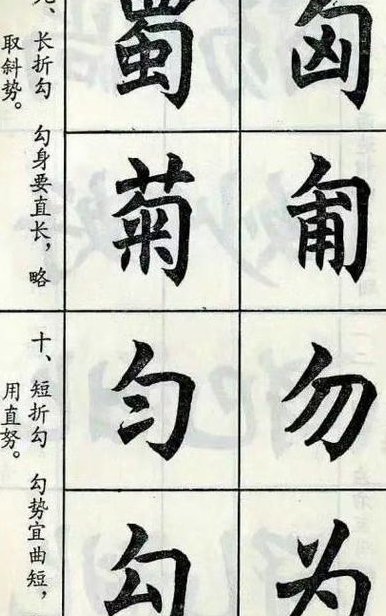 匈
匍
蜀
菊
九、长折勾 勾身要直长，略
取斜势。
勿
为
匀
勾
十、短折勾 勾势宜曲短，
用直努。